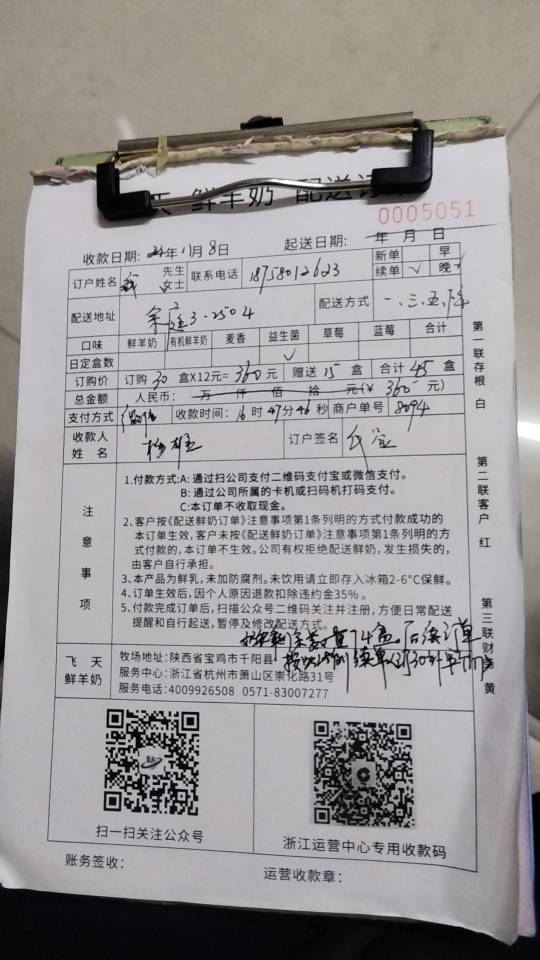 鲜羊奶 配送订
0005051
收款日期: 24年11月8日 起送日期: 年 月 日
订户姓名 先生 女士 联系电话 18758012623 新单 早
续单 √ 晚 √
配送地址 3-2504 配送方式 一、三、五、
口味 鲜羊奶 有机鲜羊奶 麦香 益生菌 草莓 蓝莓 合计
日定盒数 √
订购价 订购 30 盒X12元= 360 元 赠送 15 盒 合计 45 盒
总金额 人民币: 万 仟 佰 拾 元(¥ 360 元)
支付方式 微信 收款时间: 16 时 47 分 46 秒 商户单号 8094
收款人姓名 杨 订户签名
注意事项
1.付款方式:A: 通过扫公司支付二维码支付宝或微信支付。
B: 通过公司所属的卡机或扫码机打码支付。
C:本订单不收取现金。
2、客户按《配送鲜奶订单》注意事项第1条列明的方式付款成功的
本订单生效，客户未按《配送鲜奶订单》注意事项第1条列明的方
式付款的，本订单不生效。公司有权拒绝配送鲜奶，发生损失的，
由客户自行承担。
3、本产品为鲜乳，未加防腐剂。未饮用请立即存入冰箱2-6℃保鲜。
4、订单生效后，因个人原因退款扣除违约金35%。
5、付款完成订单后，扫描公众号二维码关注并注册，方便日常配送
提醒和自行起送，暂停及修改配送方式。
74盒 后续订单
续单 30
飞天鲜羊奶
牧场地址:陕西省宝鸡市千阳县
服务中心:浙江省杭州市萧山区崇化路31号
服务电话:4009926508 0571-83007277
扫一扫关注公众号
浙江运营中心专用收款码
账务签收: 运营收款章:
第一联存根 白
第二联客户 红
第三联财务 黄